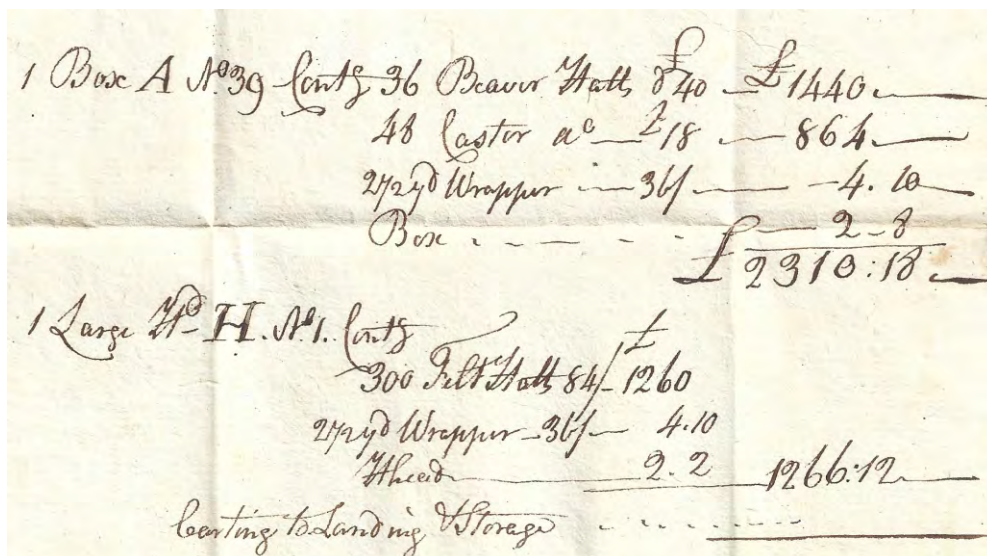 1 Box A No 39 Contg 36 Beaver Hatts @ £40 £1440
48 Castor do £18 864
2 1/2 yd Wrapper 36/ 4.10
Box 2-8
£2310:18
1 Large Hhd H. No 1. Contg £
300 Felt Hatts 84/ 1260
2 1/2 yd Wrapper 36/ 4.10
Hhead 2.2 1266:12
Carting to Landing & Storage